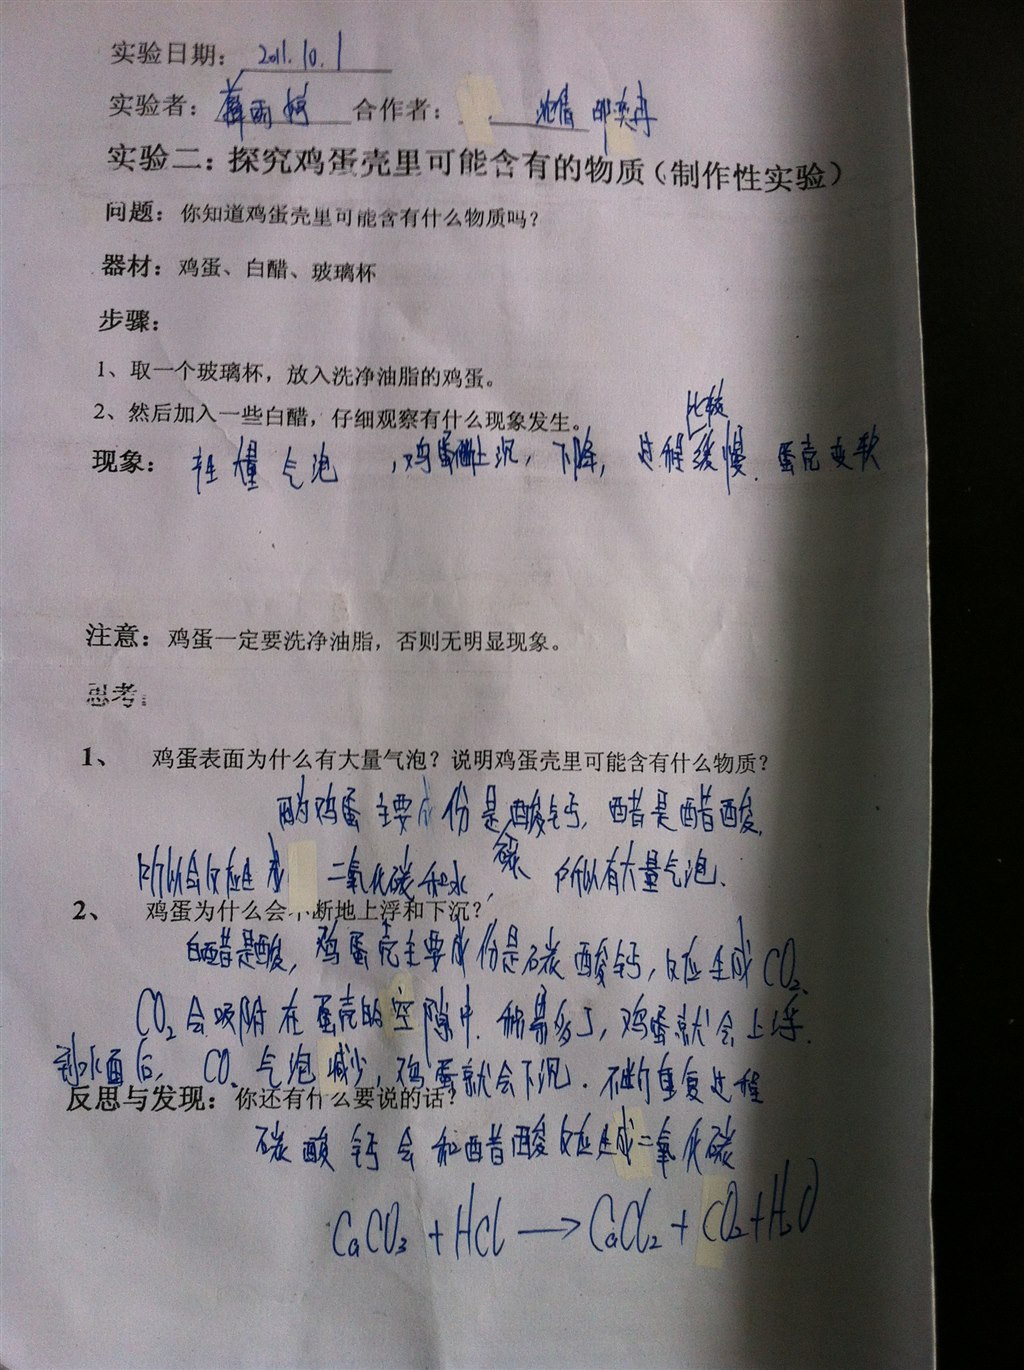 实验日期：2011.10.1
实验者：薛雨婷 合作者：沈倩 邱奕冉
实验二：探究鸡蛋壳里可能含有的物质（制作性实验）
问题：你知道鸡蛋壳里可能含有什么物质吗？
器材：鸡蛋、白醋、玻璃杯
步骤：
1、取一个玻璃杯，放入洗净油脂的鸡蛋。
2、然后加入一些白醋，仔细观察有什么现象发生。
比较
现象：大量气泡，鸡蛋上沉，下降，过程缓慢．蛋壳变软
注意：鸡蛋一定要洗净油脂，否则无明显现象。
思考：
1、 鸡蛋表面为什么有大量气泡？说明鸡蛋壳里可能含有什么物质？
因为鸡蛋主要成份是酸钙，醋是醋酸，
碳
所以会反应生成二氧化碳和水，所以有大量气泡．
2、 鸡蛋为什么会不断地上浮和下沉？
白醋是酸，鸡蛋壳主要成份是碳酸钙，反应生成CO₂、
CO₂会吸附在蛋壳的空隙中．积累多了，鸡蛋就会上浮．
到水面后，CO₂气泡减少，鸡蛋就会下沉．不断重复过程
反思与发现：你还有什么要说的话？
碳酸钙会和醋酸反应生成二氧化碳
CaCO₃+HCl→CaCl₂+CO₂+H₂O